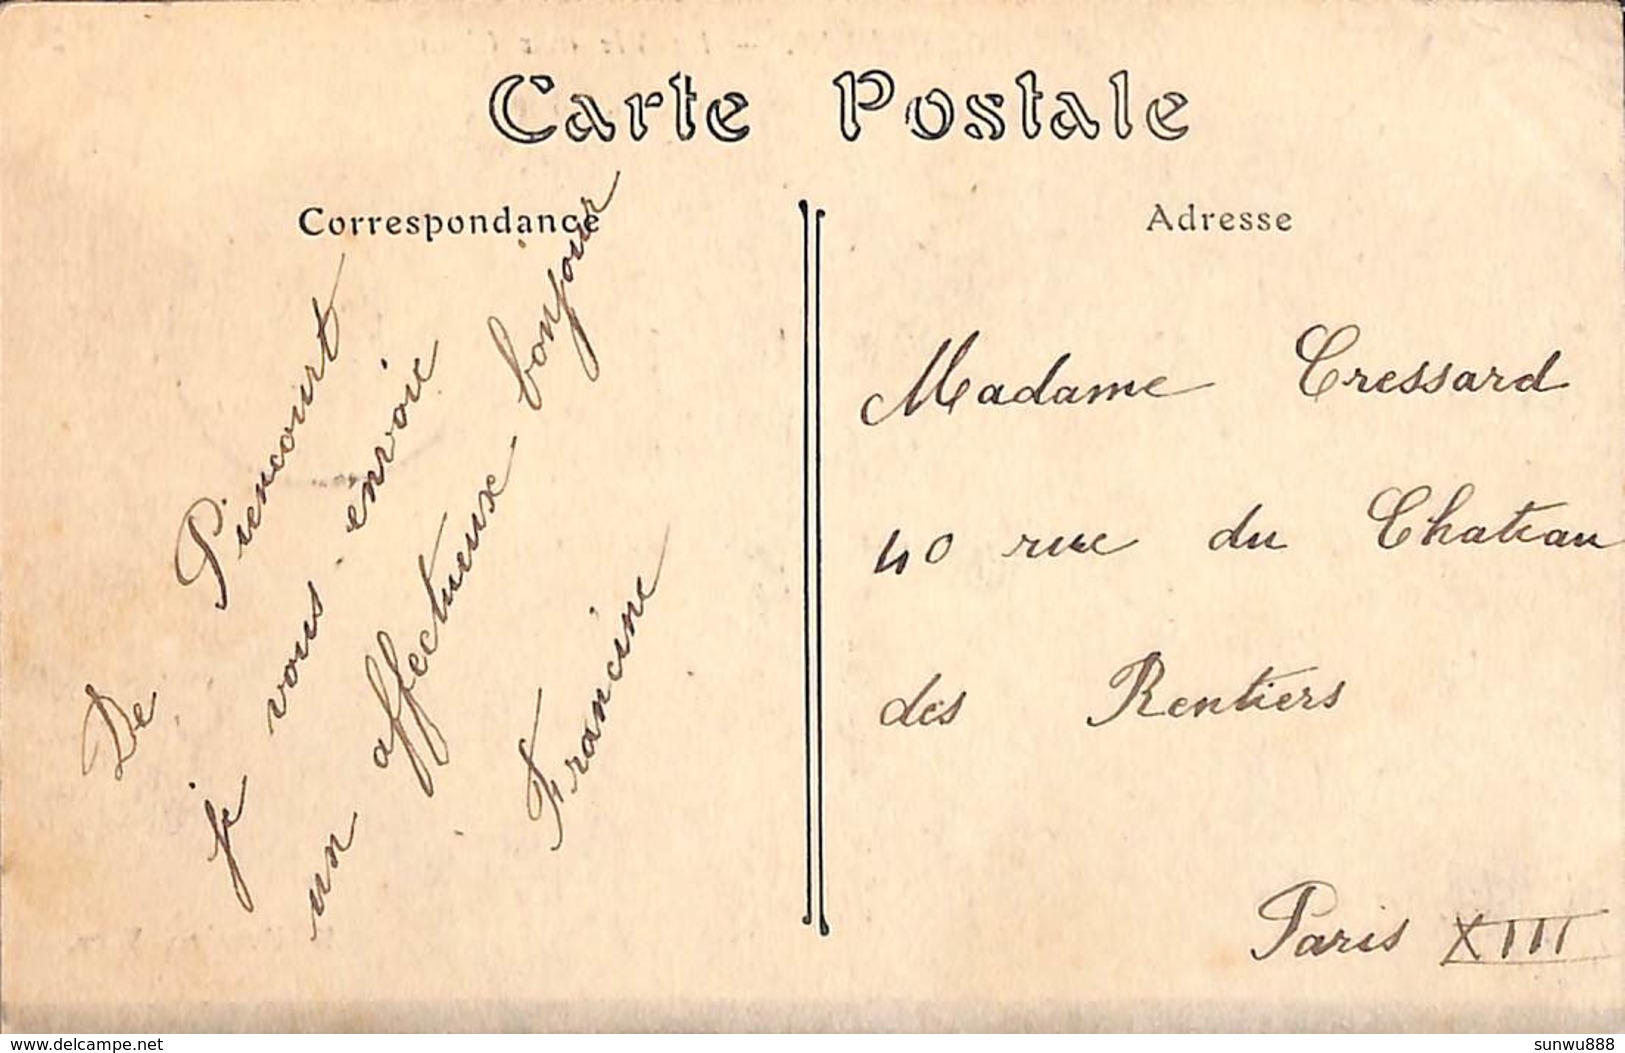 Carte Postale
Correspondance
Adresse
De Piencourt
je vous envoie
un affectueux bonjour
Francine
Madame Cressard
40 rue du Chateau
des Rentiers
Paris XIII
www.delcampe.net
sunwu888